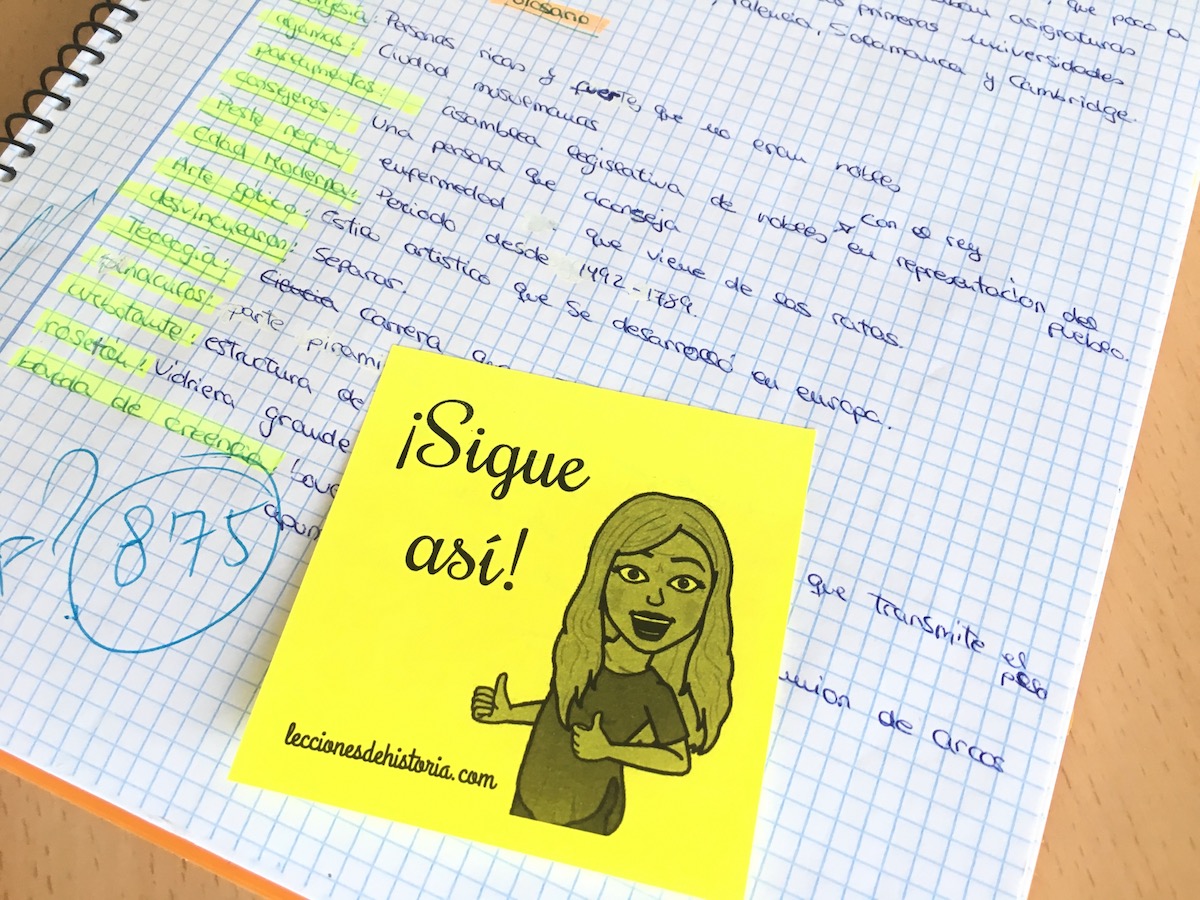 que poco a
asignaturas
primeras universidades
Valencia, Salamanca y Cambridge.
Glosario
Personas ricas y fuertes que no eran nobles
aljamas: Ciudad musulmanas
parlamentos: asamblea legislativa de nobles en representación del pueblo.
con el rey
consejeros: Una persona que aconseja
Peste negra: enfermedad que viene de las ratas.
Edad Moderna: Periodo desde 1492-1789.
Arte gótico: Estilo artistico que se desarrolló en europa.
desvincularon: Separar.
Teología: Ciencia carrera
pinaculos: parte
arbotante: estructura de que transmite el peso
rosetón: Vidriera grande
de union de arcos
875
¡Sigue
así!
leccionesdehistoria.com